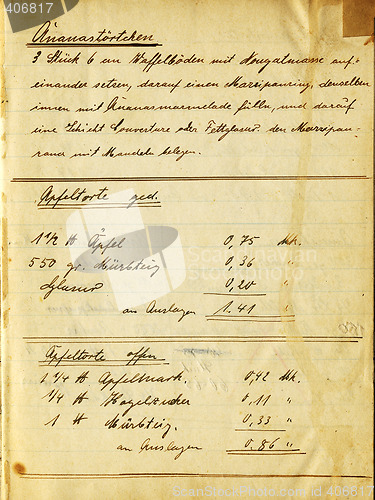 406817
Ananastörtchen
3 Stück 6 cm Waffelböden mit Nougatmasse auf=
einander setzen, darauf einen Marzipanring, denselben
innen mit Ananasmarmelade füllen, und darauf
eine Schicht Couverture oder Fettglasur. den Marzipan-
rand mit Mandeln belegen.
Apfeltorte ged.
1 1/2 ℔ Äpfel 0,75 Mk.
550 gr. Mürbteig 0,36 "
Glasur 0,20 "
an Auslagen 1.41 "
Apfeltorte offen
1 1/4 ℔ Apfelmark. 0,42 Mk.
1/4 ℔ Hagelzucker 0,11 "
1 ℔ Mürbteig. 0,33 "
an Auslagen 0.86 "
© Scanstockphoto / 406817